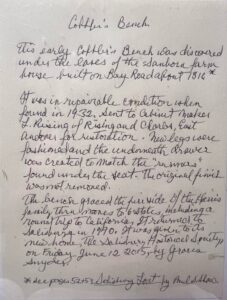 Cobbler's Bench
This early Cobbler's Bench was discovered
under the eaves of the Sanborn farm
house built on Bay Road about 1816*
It was in repairable condition when
found in 1932, sent to Cabinet Maker
Rising of Rising and Clark, East
Andover for restoration. New legs were
fashioned and the underneath drawer
was created to match the "runners"
found under the seat. The original finish
was not removed.
The bench graced the fireside of the
family, thru moves to including a
round trip to California. It returned to
Salisbury in 1970. It was given to its
new home, the Salisbury Historical Society,
on Friday, June 12, 2015, by
Snyder.
* see pages Salisbury Lost by